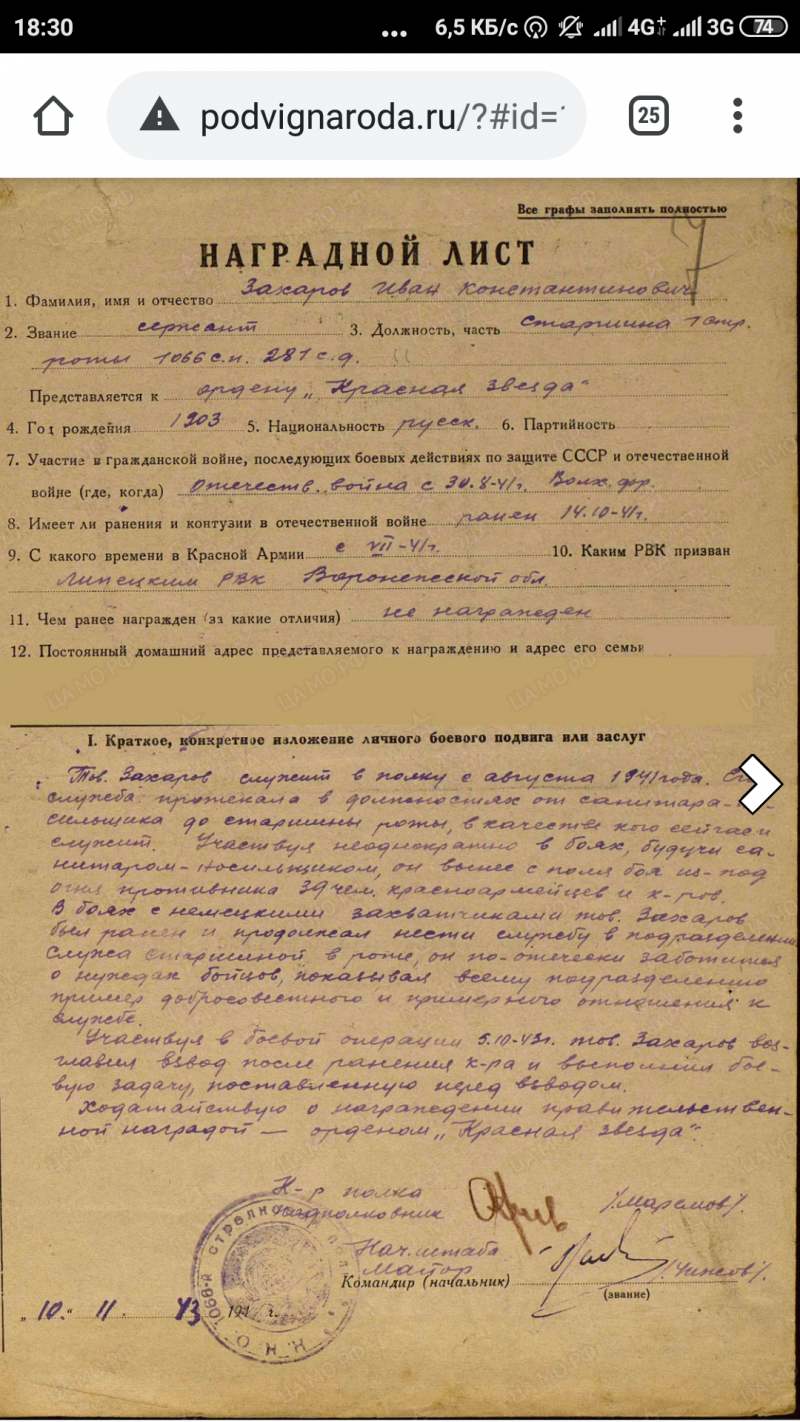 18:30 ... 6,5 КБ/с 4G+ 3G 74
podvignaroda.ru/?#id= 25
Все графы заполнять полностью
НАГРАДНОЙ ЛИСТ
1. Фамилия, имя и отчество Захаров Иван Константинович
2. Звание сержант 3. Должность, часть старшина 1 стр.
роты 1066 с.п. 281 с.д.
Представляется к ордену „Красная звезда"
4. Год рождения 1903 5. Национальность русск. 6. Партийность
7. Участие в гражданской войне, последующих боевых действиях по защите СССР и отечественной
войне (где, когда) Отечеств. война с 30.8-41г. Волх. фр.
8. Имеет ли ранения и контузии в отечественной войне ранен 14.10-41г.
9. С какого времени в Красной Армии с VII-41г. 10. Каким РВК призван
Липецким РВК Воронежской обл.
11. Чем ранее награжден (за какие отличия) не награжден
12. Постоянный домашний адрес представляемого к награждению и адрес его семьи
I. Краткое, конкретное изложение личного боевого подвига или заслуг
Тов. Захаров служит в полку с августа 1941 года.
служба протекала в должностях от санитара-но-
сильщика до старшины роты, в качестве кого сейчас и
служит. Участвуя неоднократно в боях, будучи са-
нитаром-носильщиком, он вынес с поля боя из-под
огня противника 39 чел. красноармейцев и к-ров.
В боях с немецкими захватчиками тов. Захаров
был ранен и продолжал нести службу в подразделении
Служа старшиной в роте, он по-отечески заботится
о нуждах бойцов, показывал всему подразделению
пример добросовестного и примерного отношения к
службе.
Участвуя в боевой операции 5.10-43г. тов. Захаров воз-
главил взвод после ранения к-ра и выполнил бое-
вую задачу, поставленную перед взводом.
Ходатайствую о награждении правительствен-
ной наградой — орденом „Красная звезда".
К-р полка
подполковник
Нач. штаба
Майор
Командир (начальник)
(звание)
„10." 11 43 194 г.
1066-й стрелко
Н К О